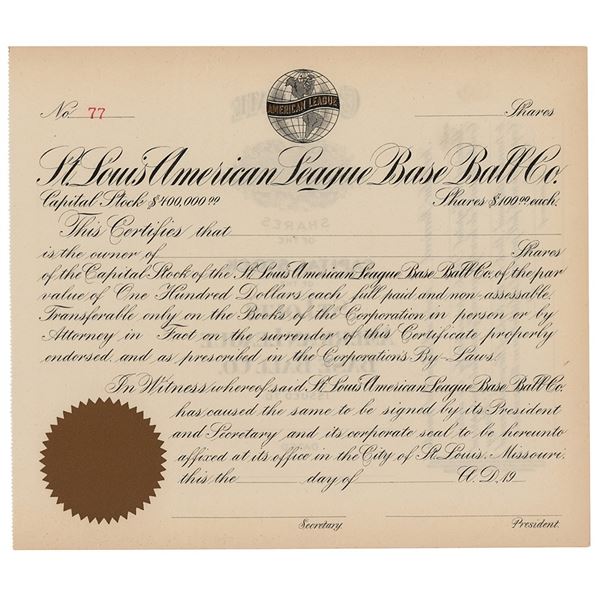 No. 77
AMERICAN LEAGUE
Shares
St. Louis American League Base Ball Co.
Capital Stock $400,000.00
Shares $100.00 each.
This Certifies that
is the owner of
Shares
of the Capital Stock of the St. Louis American League Base Ball Co. of the par
value of One Hundred Dollars each full paid and non-assessable.
Transferable only on the Books of the Corporation in person or by
Attorney in Fact on the surrender of this Certificate properly
endorsed, and as prescribed in the Corporation's By-Laws.
In Witness whereof said, St. Louis American League Base Ball Co.
has caused the same to be signed by its President
and Secretary and its corporate seal to be hereunto
affixed at its office in the City of St. Louis, Missouri.
this the day of A.D. 19
Secretary.
President.